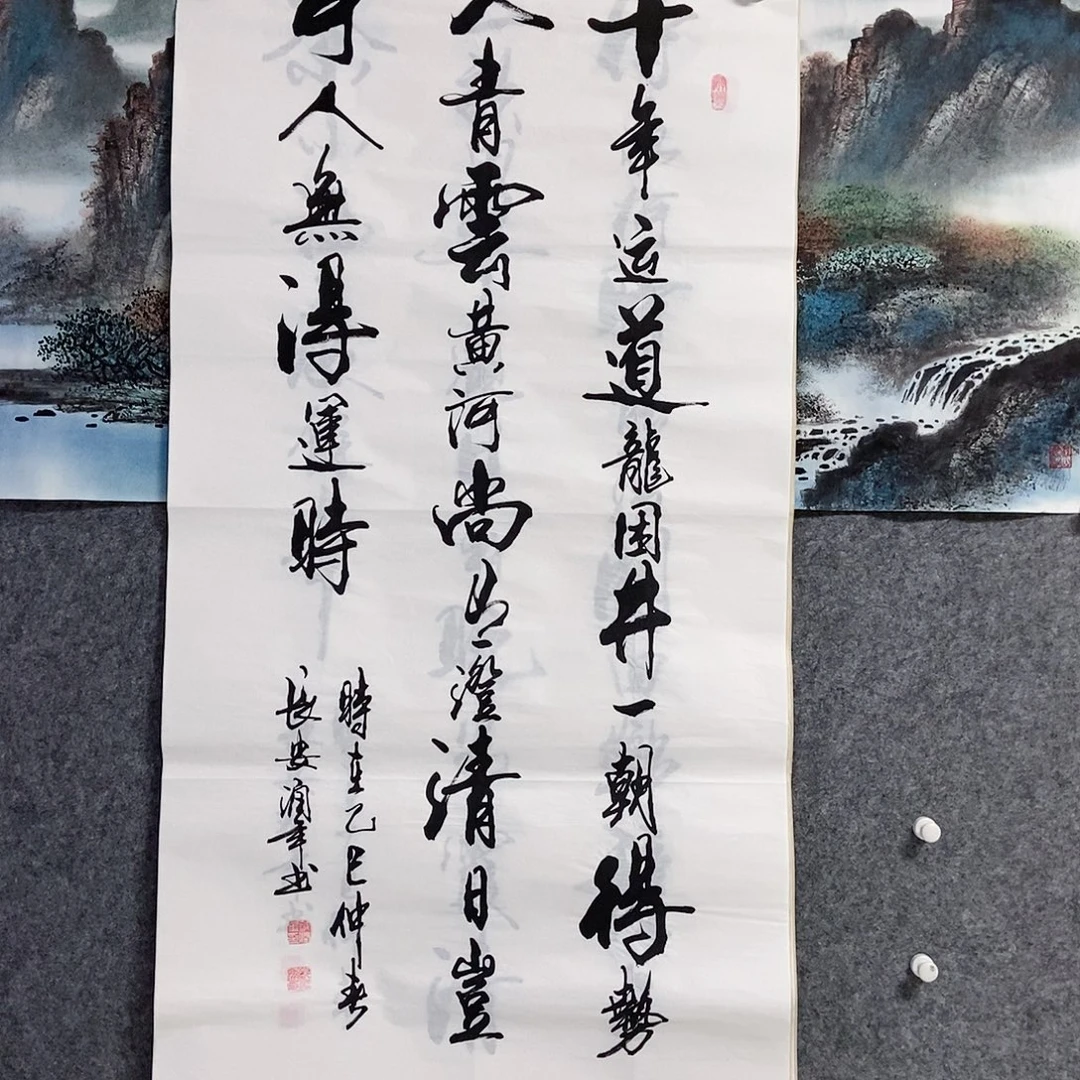 十年运道龍困井一朝得勢
入青雲黃河尚有澄清日豈
可人無得運時
時在乙巳仲春
長安润年书